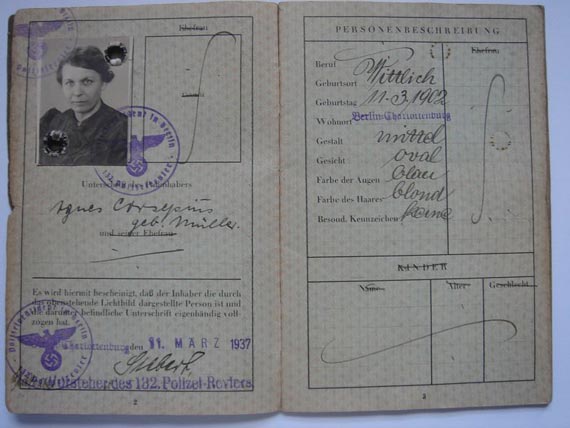 Ehefrau
Unterschrift des Paßinhabers
Agnes Corsepius
geb Müller.
und seiner Ehefrau
Es wird hiermit bescheinigt, daß der Inhaber die durch
das obenstehende Lichtbild dargestellte Person ist und
die darunter befindliche Unterschrift eigenhändig voll-
zogen hat.
Charlottenburg den 11. MÄRZ 1937
Vorsteher des 132. Polizei-Reviers
2
PERSONENBESCHREIBUNG
Ehefrau
Beruf
Geburtsort Wittlich
Geburtstag 11.3.1902
Wohnort Berlin-Charlottenburg
Gestalt mittel
Gesicht oval
Farbe der Augen blau
Farbe des Haares blond
Besond. Kennzeichen keine
KINDER
Name Alter Geschlecht
3